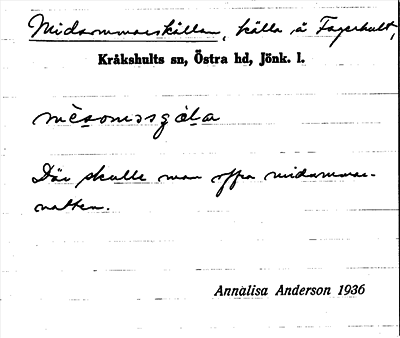 Midsommarskällan, källa å Fagerhult,
Kråkshults sn, Östra hd, Jönk. l.
mèsomɔsgäla
Där skulle man offra midsommar-
natten.
Annalisa Anderson 1936